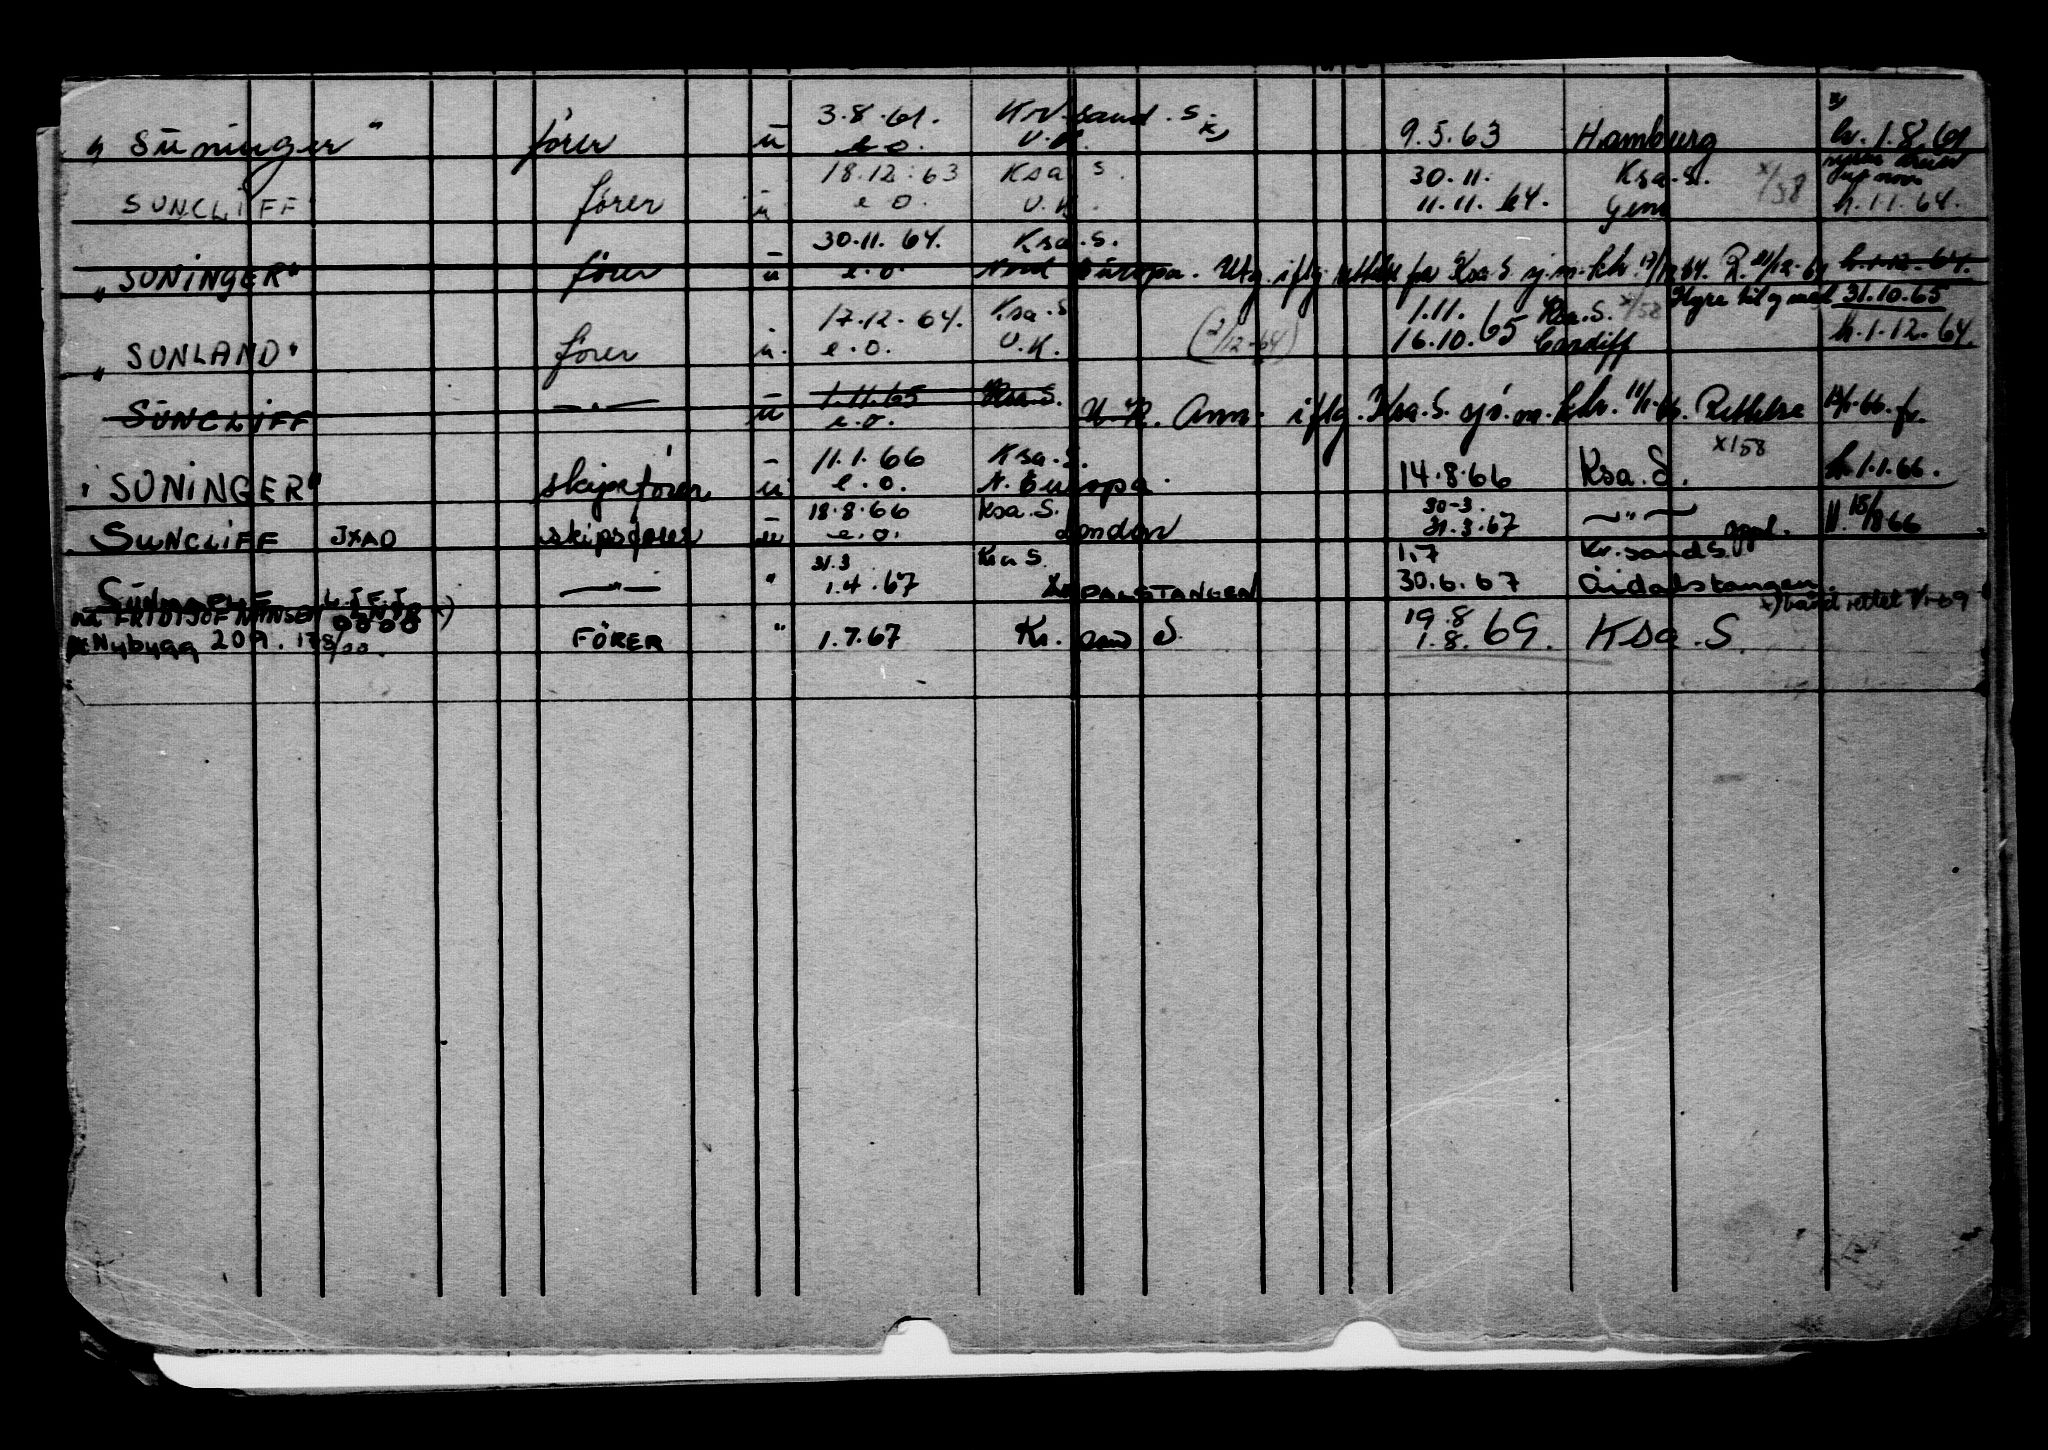 " Suninger " fører u 3.8.61. e.o. Kr.sand.S. U.K. x) 9.5.63 Hamburg h. 1.8.61
SUNCLIFF fører u 18.12.63 e.o. Ksa S. U.K. 30.11. 11.11.64. Ksa.S. x/58 h.1.1.64.
" SUNINGER" fører u 30.11.64. e.o. Ksa.S. Nord Europa. Utg. iflg. rettelse fra Ksa S sj.m.ktr. h.1.12.64.
Hyre til og med 31.10.65
" SUNLAND" fører u. 17.12.64. e.o. Ksa.S U.K. (2/12-64) 1.11. 16.10.65 Ksa.S. x/58 Cardiff h.1.12.64.
SUNCLIFF —"— u 1.11.65 e.o. Ksa.S. U.K. Ann. iflg. Ksa.S. sjø.m.ktr. 11/1-66. Rettelse
" SUNINGER" skipsfører u 11.1.66 e.o. Ksa.S. N. Europa. 14.8.66 Ksa.S. x158 h.1.1.66.
SUNCLIFF JXAD skipsfører u 18.8.66 e.o. Ksa.S. London 30-3. 31.3.67 —"— oppl. H.15/8 66
SUNMAPLE LJFJ —"— " 31.3 1.4.67 Ksa S. 1.7 30.6.67 Kr.sand S. Åidalstangen.
nå FRIDTJOF NANSEN x) x) bånd rettet
Nybygg 209. 178/00. FÖRER " 1.7.67 Kr. sand S. 19.8 1.8.69. Ksa.S.